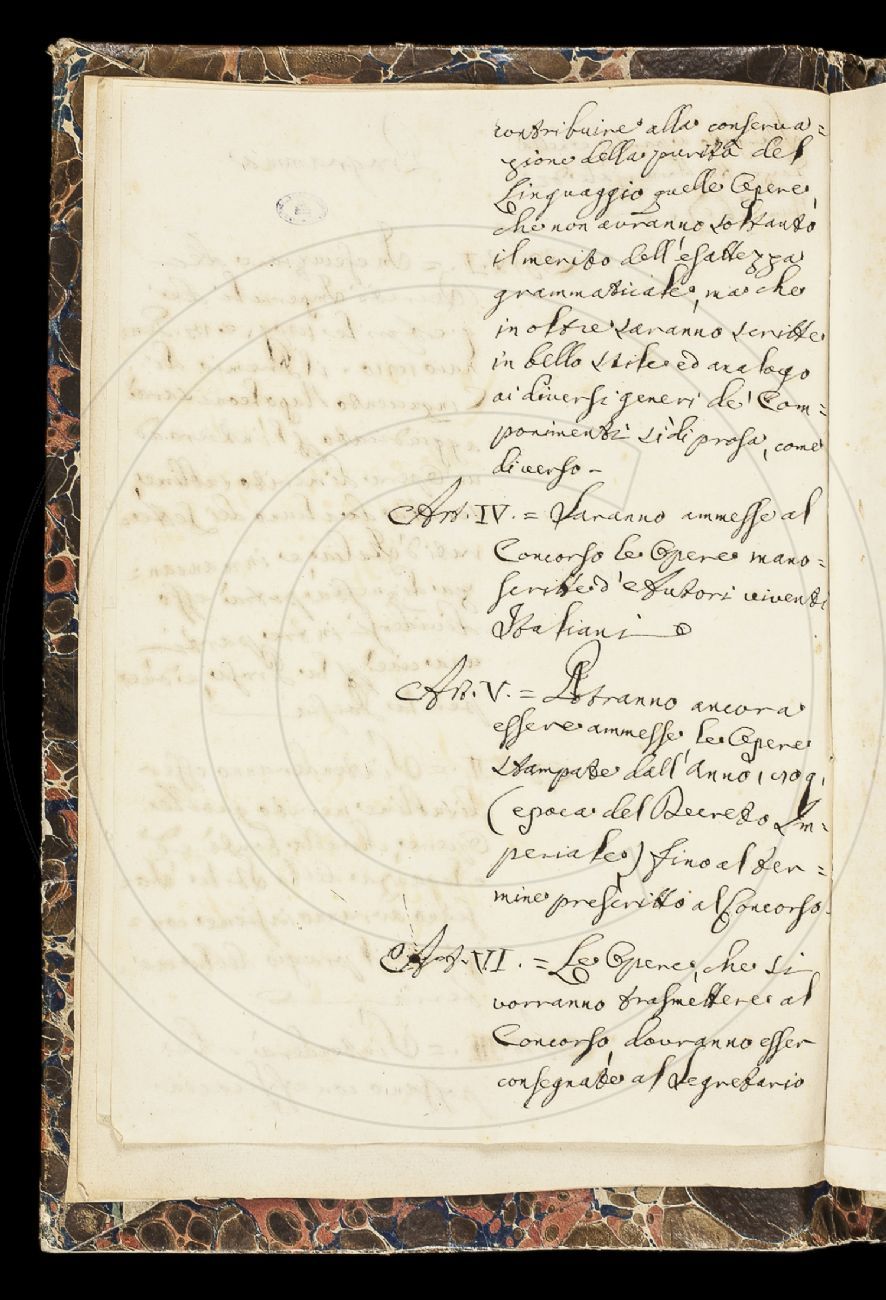 contribuire alla conserva=
zione della purità del
Linguaggio quelle Opere,
che non avranno soltanto
il merito dell'esattezza
grammaticale, ma che
in oltre saranno scritte
in bello stile ed analogo
ai diversi generi de' Com=
ponimenti sì di prosa, come
di verso -
Art. IV. = Saranno ammesse al
Concorso le Opere mano=
scritte d'Autori viventi
Italiani
Art. V. = Potranno ancora
essere ammesse le Opere
stampate dall'anno 1809,
(epoca del Decreto Im=
periale) fino al ter=
mine prescritto al Concorso.
Art. VI. = Le Opere, che si
vorranno trasmettere al
Concorso, dovranno esser
consegnate al Segretario